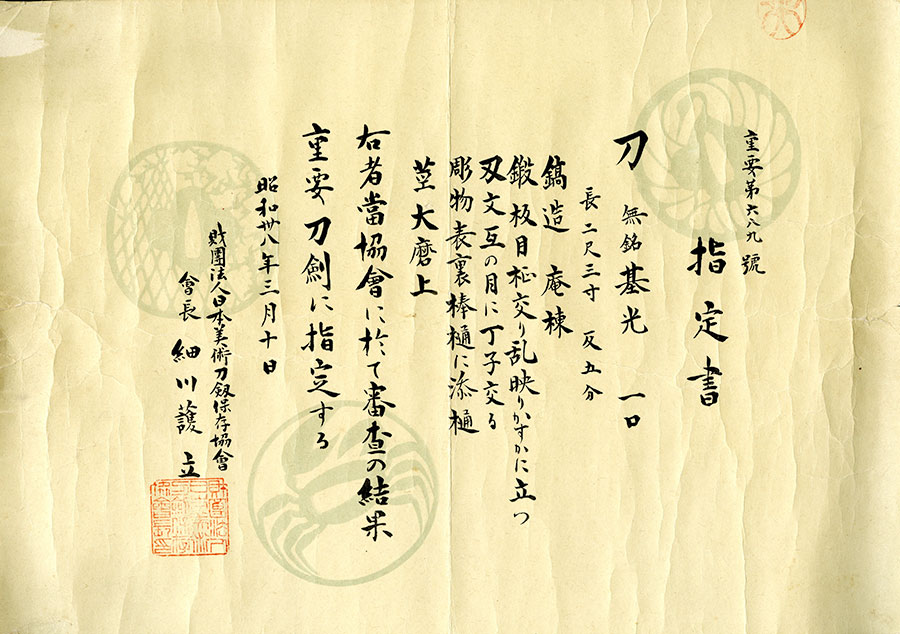 重要第六八九號
指定書
刀 無銘基光 一口
長二尺三寸 反五分
鎬造 庵棟
鍛板目柾交り乱映りかすかに立つ
刄文互の目に丁子交る
彫物表裏棒樋に添樋
茎大磨上
右者當協會に於て審査の結果
重要刀劍に指定する
昭和卅八年三月十日
財團法人日本美術刀剱保存協會
會長 細川護立